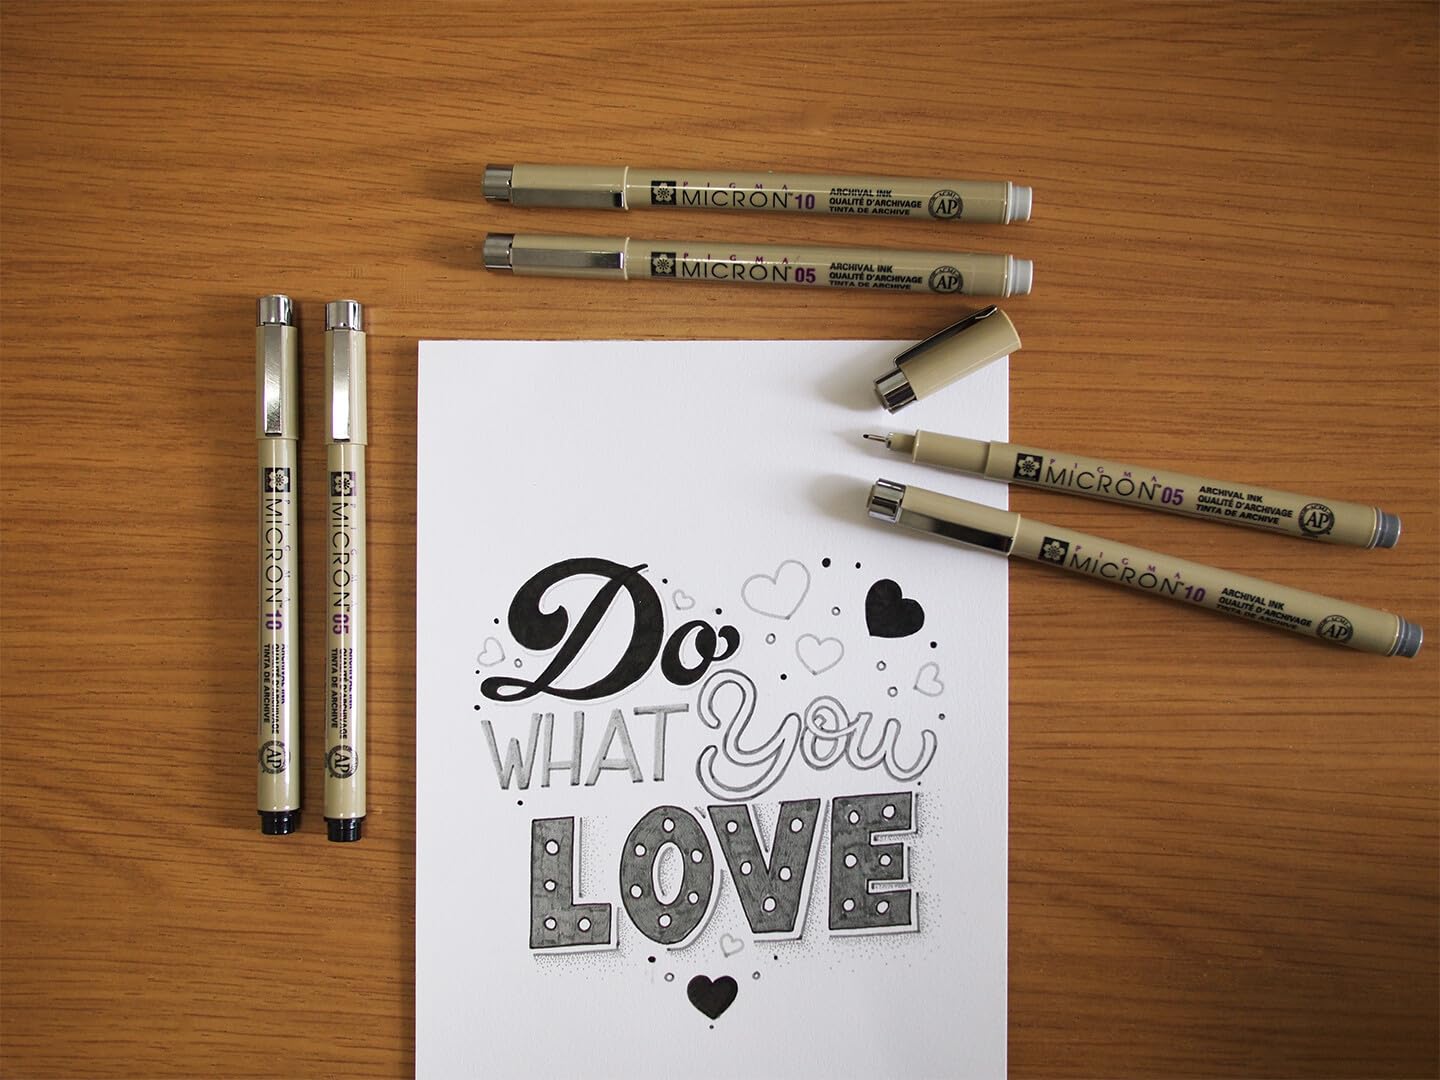 PIGMA
MICRON™10
ARCHIVAL INK
QUALITÉ D'ARCHIVAGE
TINTA DE ARCHIVE
ACMI
AP
PIGMA
MICRON™05
ARCHIVAL INK
QUALITÉ D'ARCHIVAGE
TINTA DE ARCHIVE
ACMI
AP
PIGMA
MICRON™10
ARCHIVAL INK
QUALITÉ D'ARCHIVAGE
TINTA DE ARCHIVE
AP
PIGMA
MICRON™05
ARCHIVAL INK
QUALITÉ D'ARCHIVAGE
TINTA DE ARCHIVE
AP
PIGMA
MICRON™05
ARCHIVAL INK
QUALITÉ D'ARCHIVAGE
TINTA DE ARCHIVE
ACMI
AP
PIGMA
MICRON™10
ARCHIVAL INK
QUALITÉ D'ARCHIVAGE
TINTA DE ARCHIVE
ACMI
AP
Do
WHAT You
LOVE